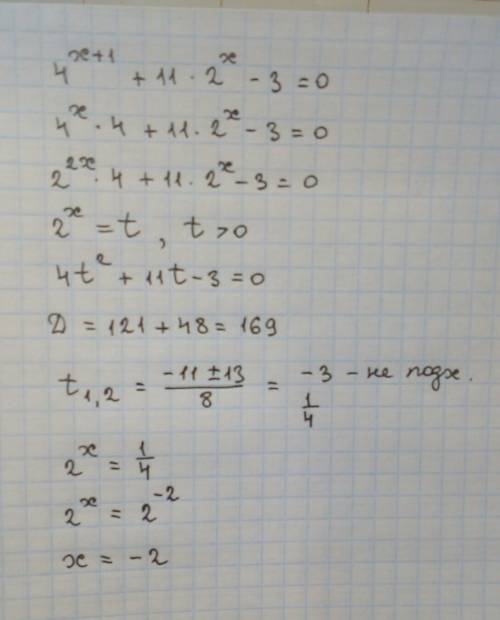 4^(x+1) + 11 · 2^x - 3 = 0
4^x · 4 + 11 · 2^x - 3 = 0
2^(2x) · 4 + 11 · 2^x - 3 = 0
2^x = t , t > 0
4t² + 11t - 3 = 0
D = 121 + 48 = 169
t₁,₂ = (-11 ± 13)/8 = -3 - не подх.
1/4
2^x = 1/4
2^x = 2^(-2)
x = -2